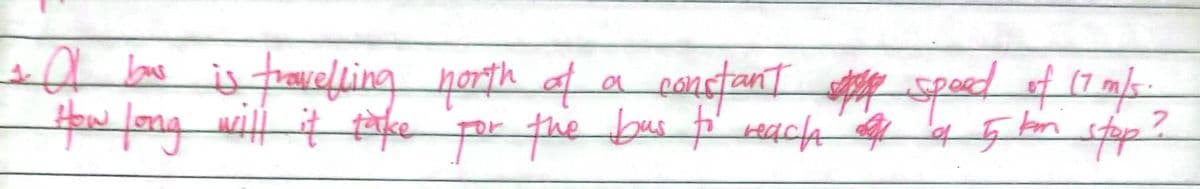 1. A bus is travelling north at a constant speed of 17 m/s.
How long will it take for the bus to reach a 5 km stop?